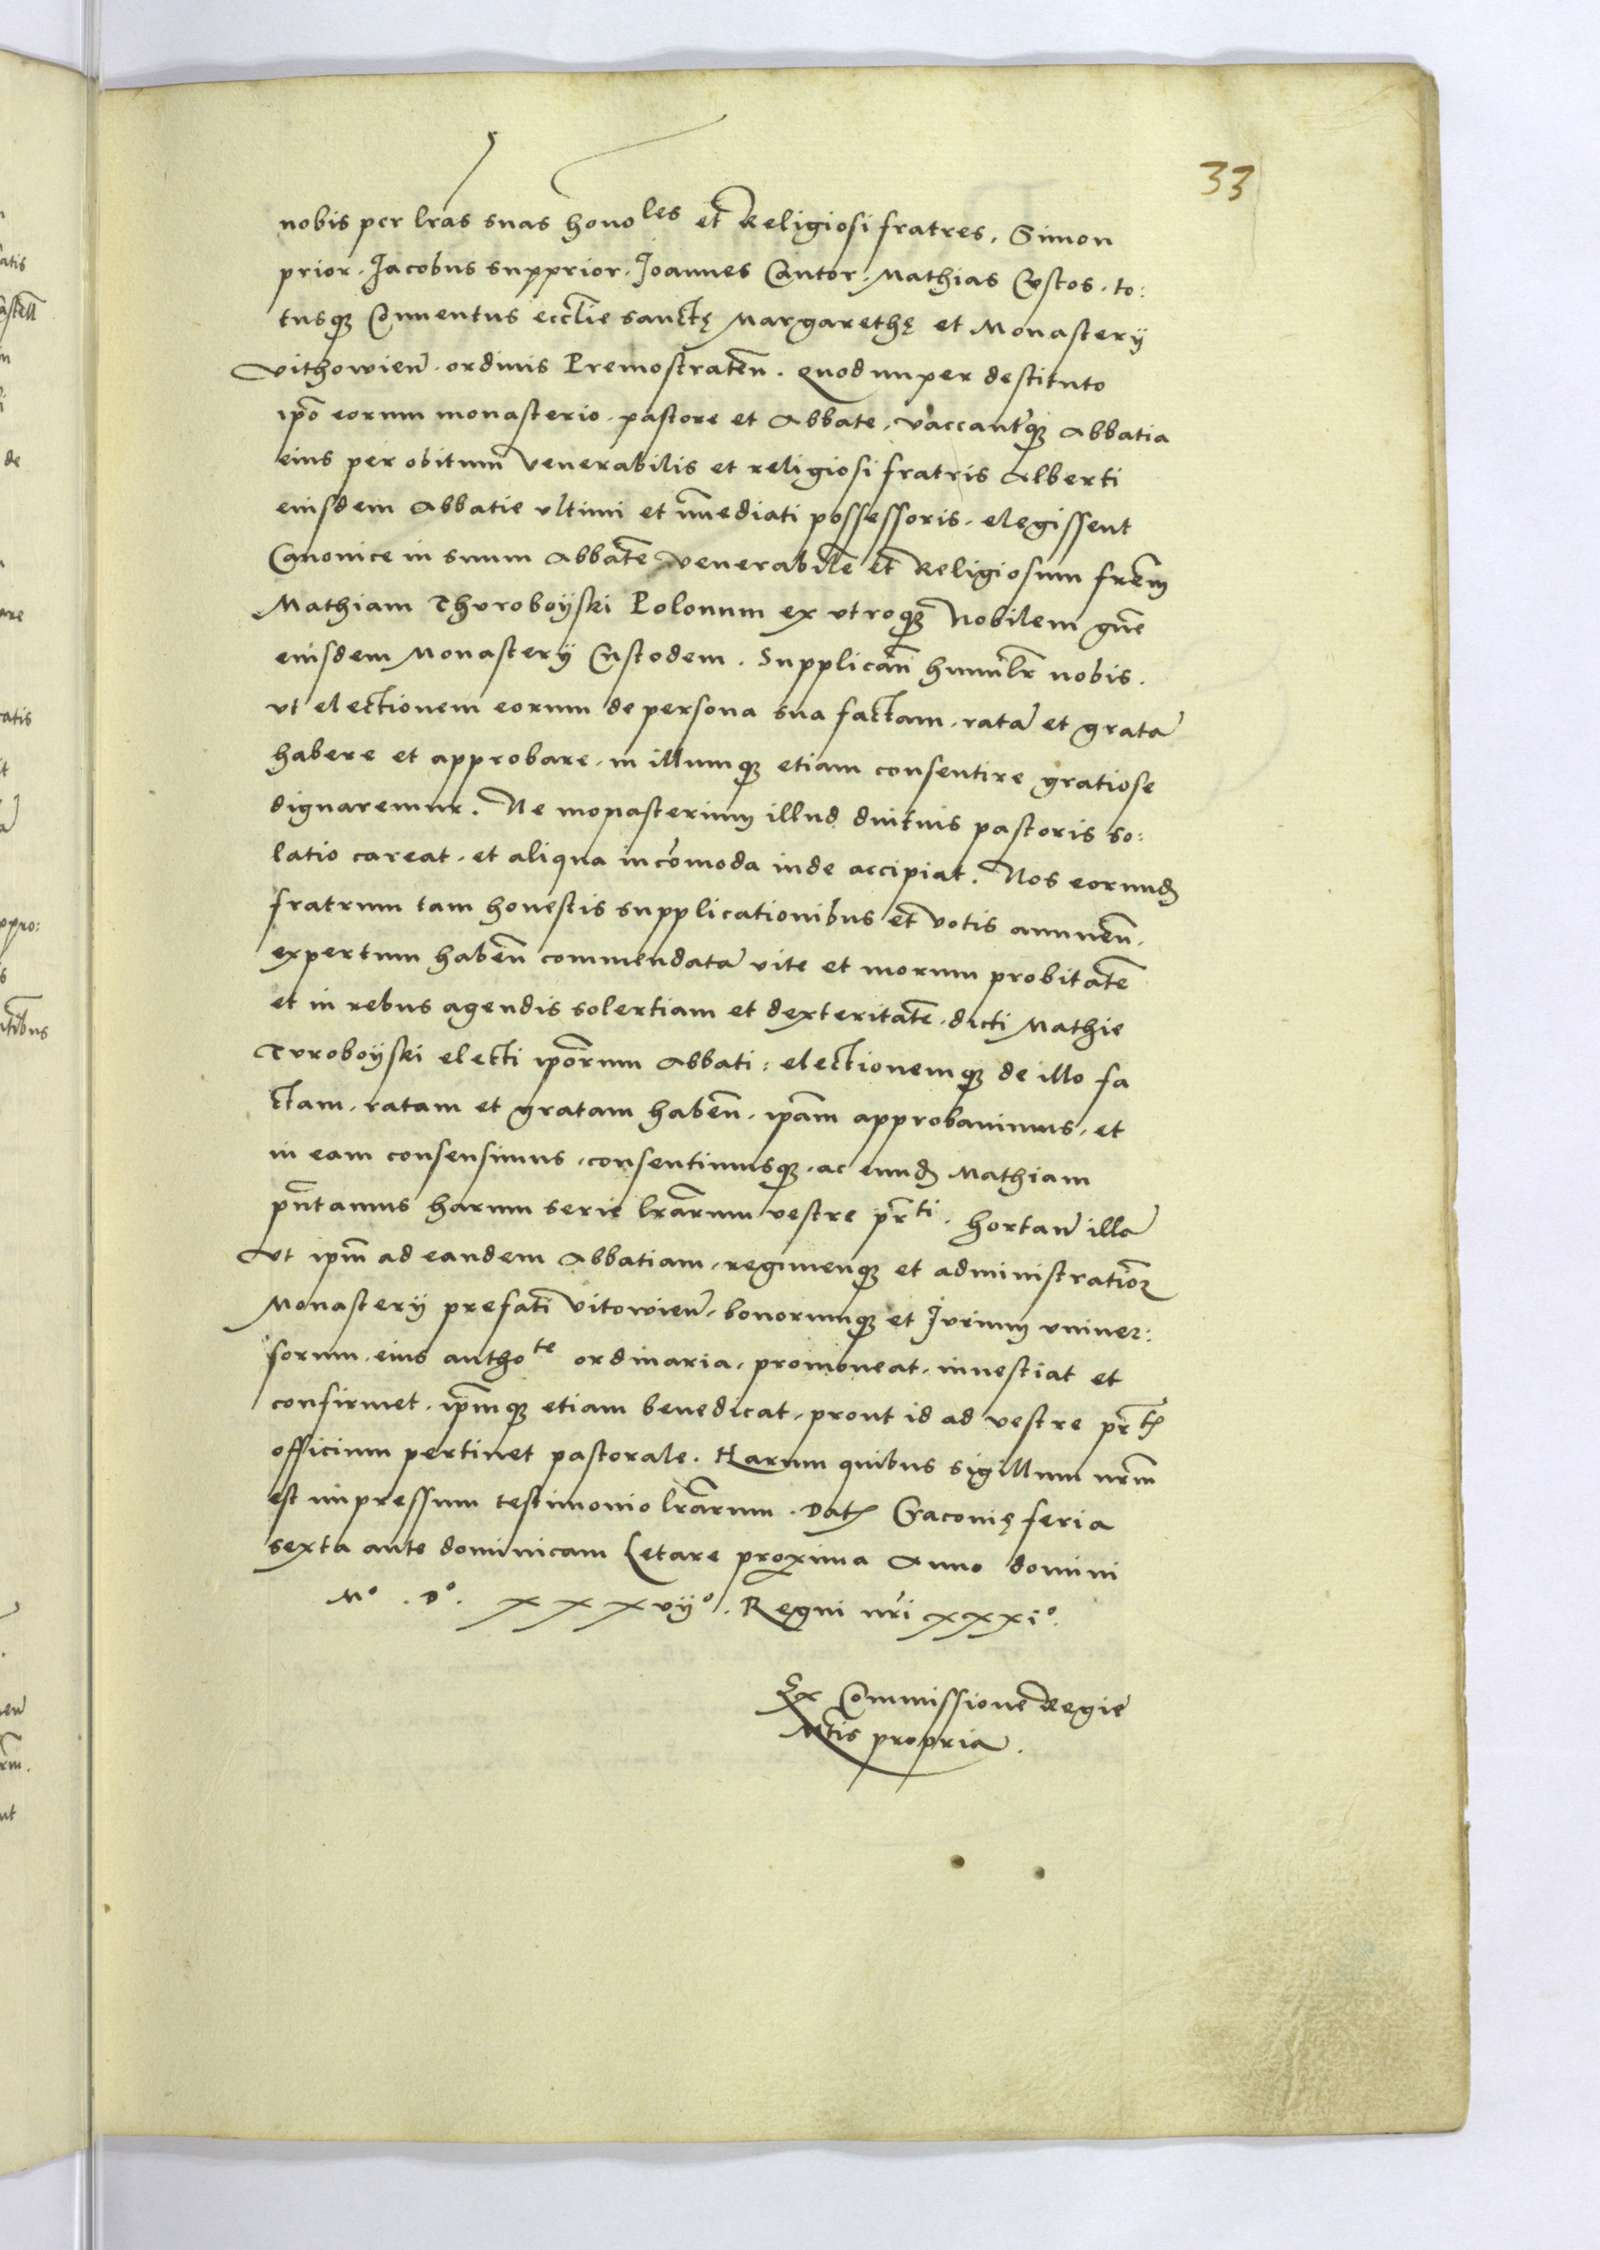 33
nobis per lras suas hono les et Religiosi fratres, Simon
prior. Jacobus supprior. Joannes Cantor. Mathias Custos. to:
tusq; Conuentus ecclie sanctę Margarethę et Monasterÿ
Vithowien̄. ordinis Premostraten̄. Quod nuper destituto
ip̄o eorum monasterio. pastore et Abbate, vaccanteq; Abbatia
eius per obitum Venerabilis et religiosi fratris Alberti
eiusdem Abbatie vltimi et im̄ediati possessoris. elęgissent
Canonice in suum Abbatē venerabilē et Religiosum frēm
Mathiam Thvroboÿski Polonum ex vtroq; Nobilem gn̄e
eiusdem Monasterÿ Custodem. Supplicān humilr̄ nobis.
vt electionem eorum de persona sua factam. ratā et gratā
habere et approbare. in illumq; etiam consentire gratiose
dignaremur. Ne monasterium illud diutuis pastoris so:
latio careat. et aliqua incōmoda inde accipiat. Nos eorund̄
fratrum tam honestis supplicationibus et votis annuen̄.
expertum haben̄ commendatā vite et morum probitatē
et in rebus agendis solertiam et dexteritatē. dicti Mathie
Tvroboÿski electi ip̄orum Abbati: electionemq; de illo fa
ctam. ratam et gratam haben̄. ip̄am approbauimus. et
in eam consensimus. consentimusq;. ac eund̄ Mathiam
pn̄tamus harum serie lr̄arum vestre pr̄ti. hortan̄ illā
Vt ip̄m ad eandem Abbatiam. regimenq; et administrationē
Monasterÿ prefati Vitowien̄. bonorumq; et Jvrium vniuer:
sorum. eius autho te ordinaria. promoueat. inuestiat et
confirmet. ip̄mq; etiam benedicat. prout id ad vestre pr̄tis
officium pertinet pastorale. Harum quibus sigillum nr̄m
est impressum testimonio lr̄arum. Dat̄ Cracouię feria
sexta ante dominicam Letare proxima Anno domini
Mº. Dº. xxxvÿº. Regni nr̄i xxxiº.
Ex Commissione Regie
Mtis propria.